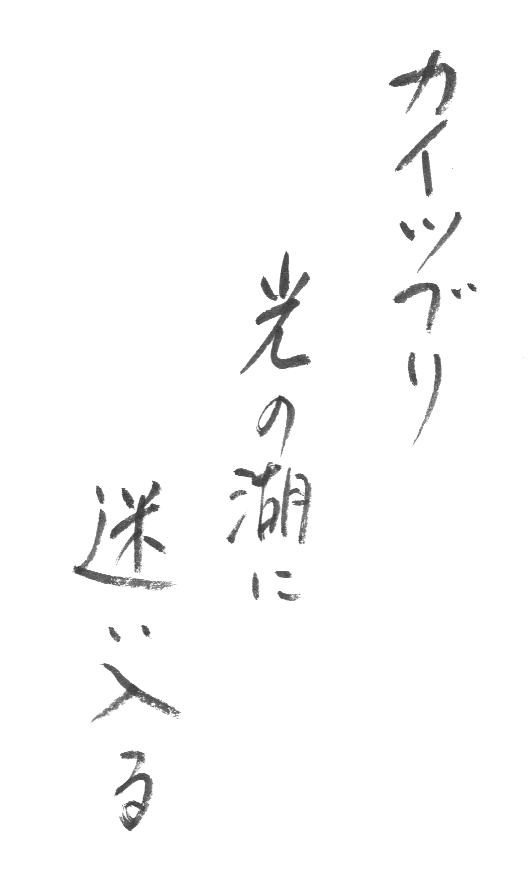 カイツブリ
光の湖に
迷い入る